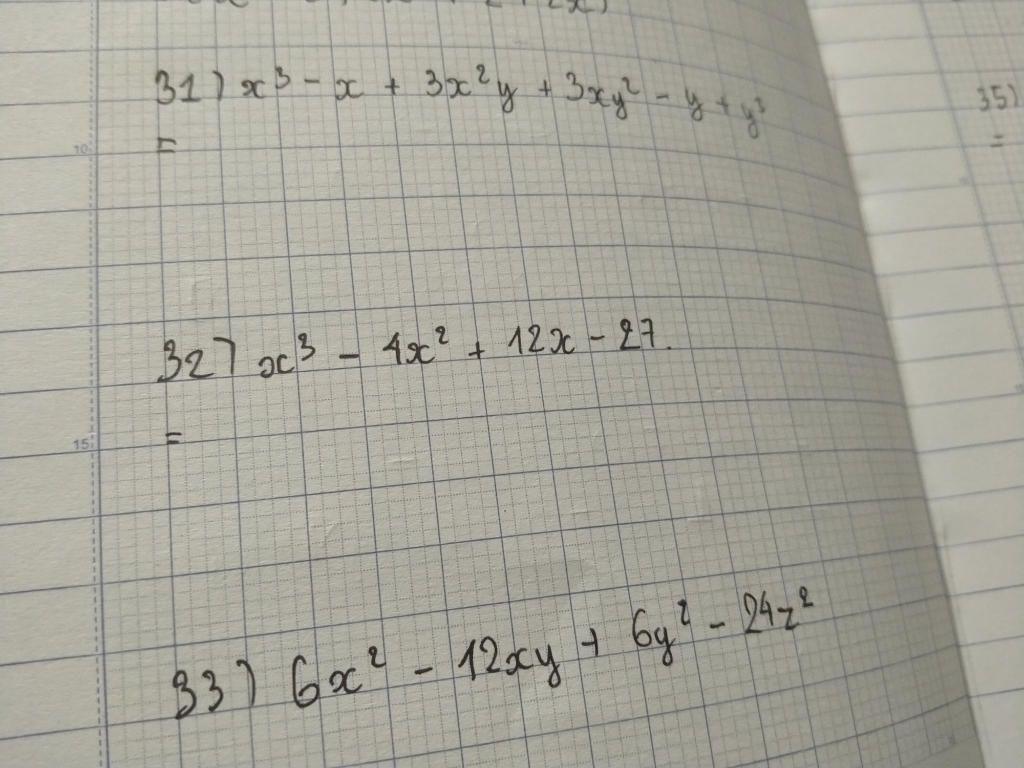 31) x³ - x + 3x²y + 3xy² - y + y³
35)
10
=
=
32) x³ - 4x² + 12x - 27.
15
=
33) 6x² - 12xy + 6y² - 24z²